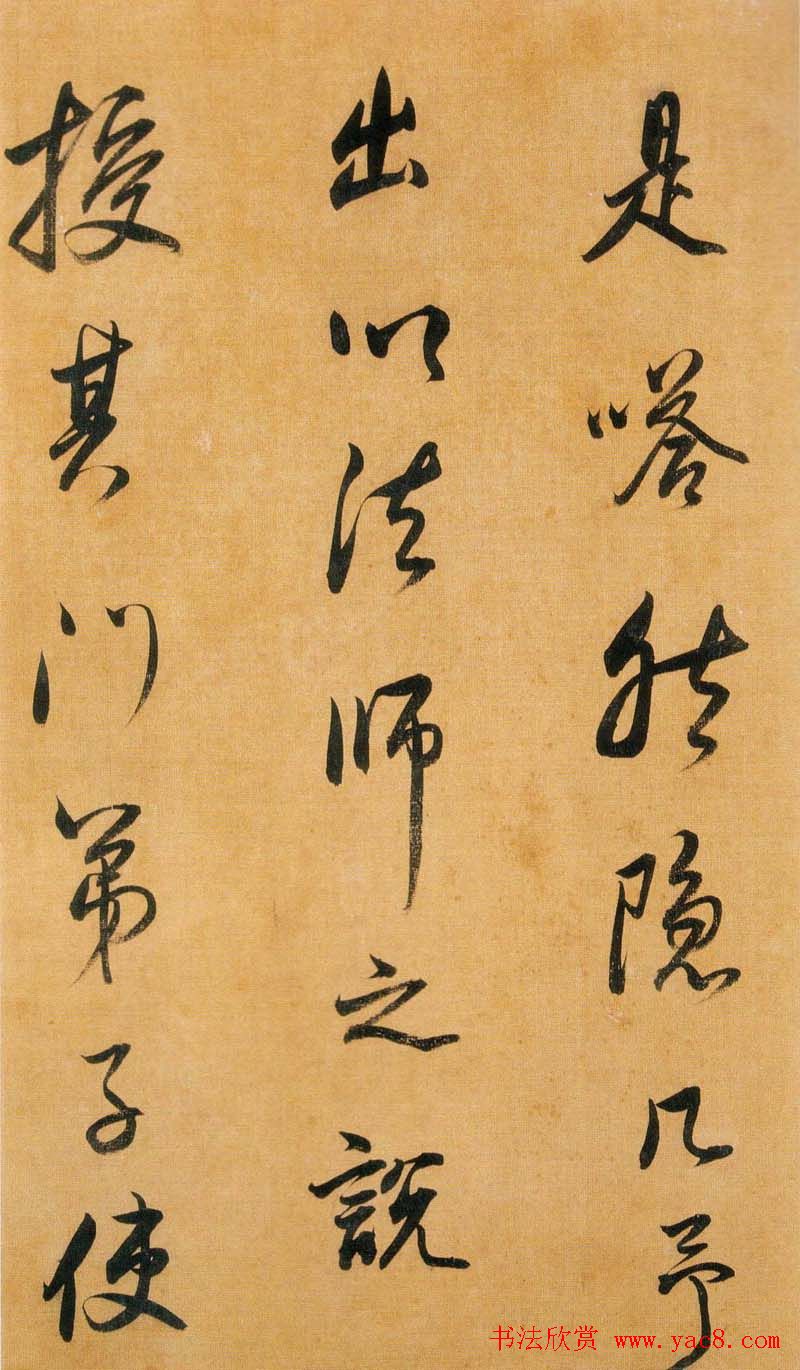 是嗒然隐几予
出以法师之說
授其门弟子使
书法欣赏 www.yac8.com